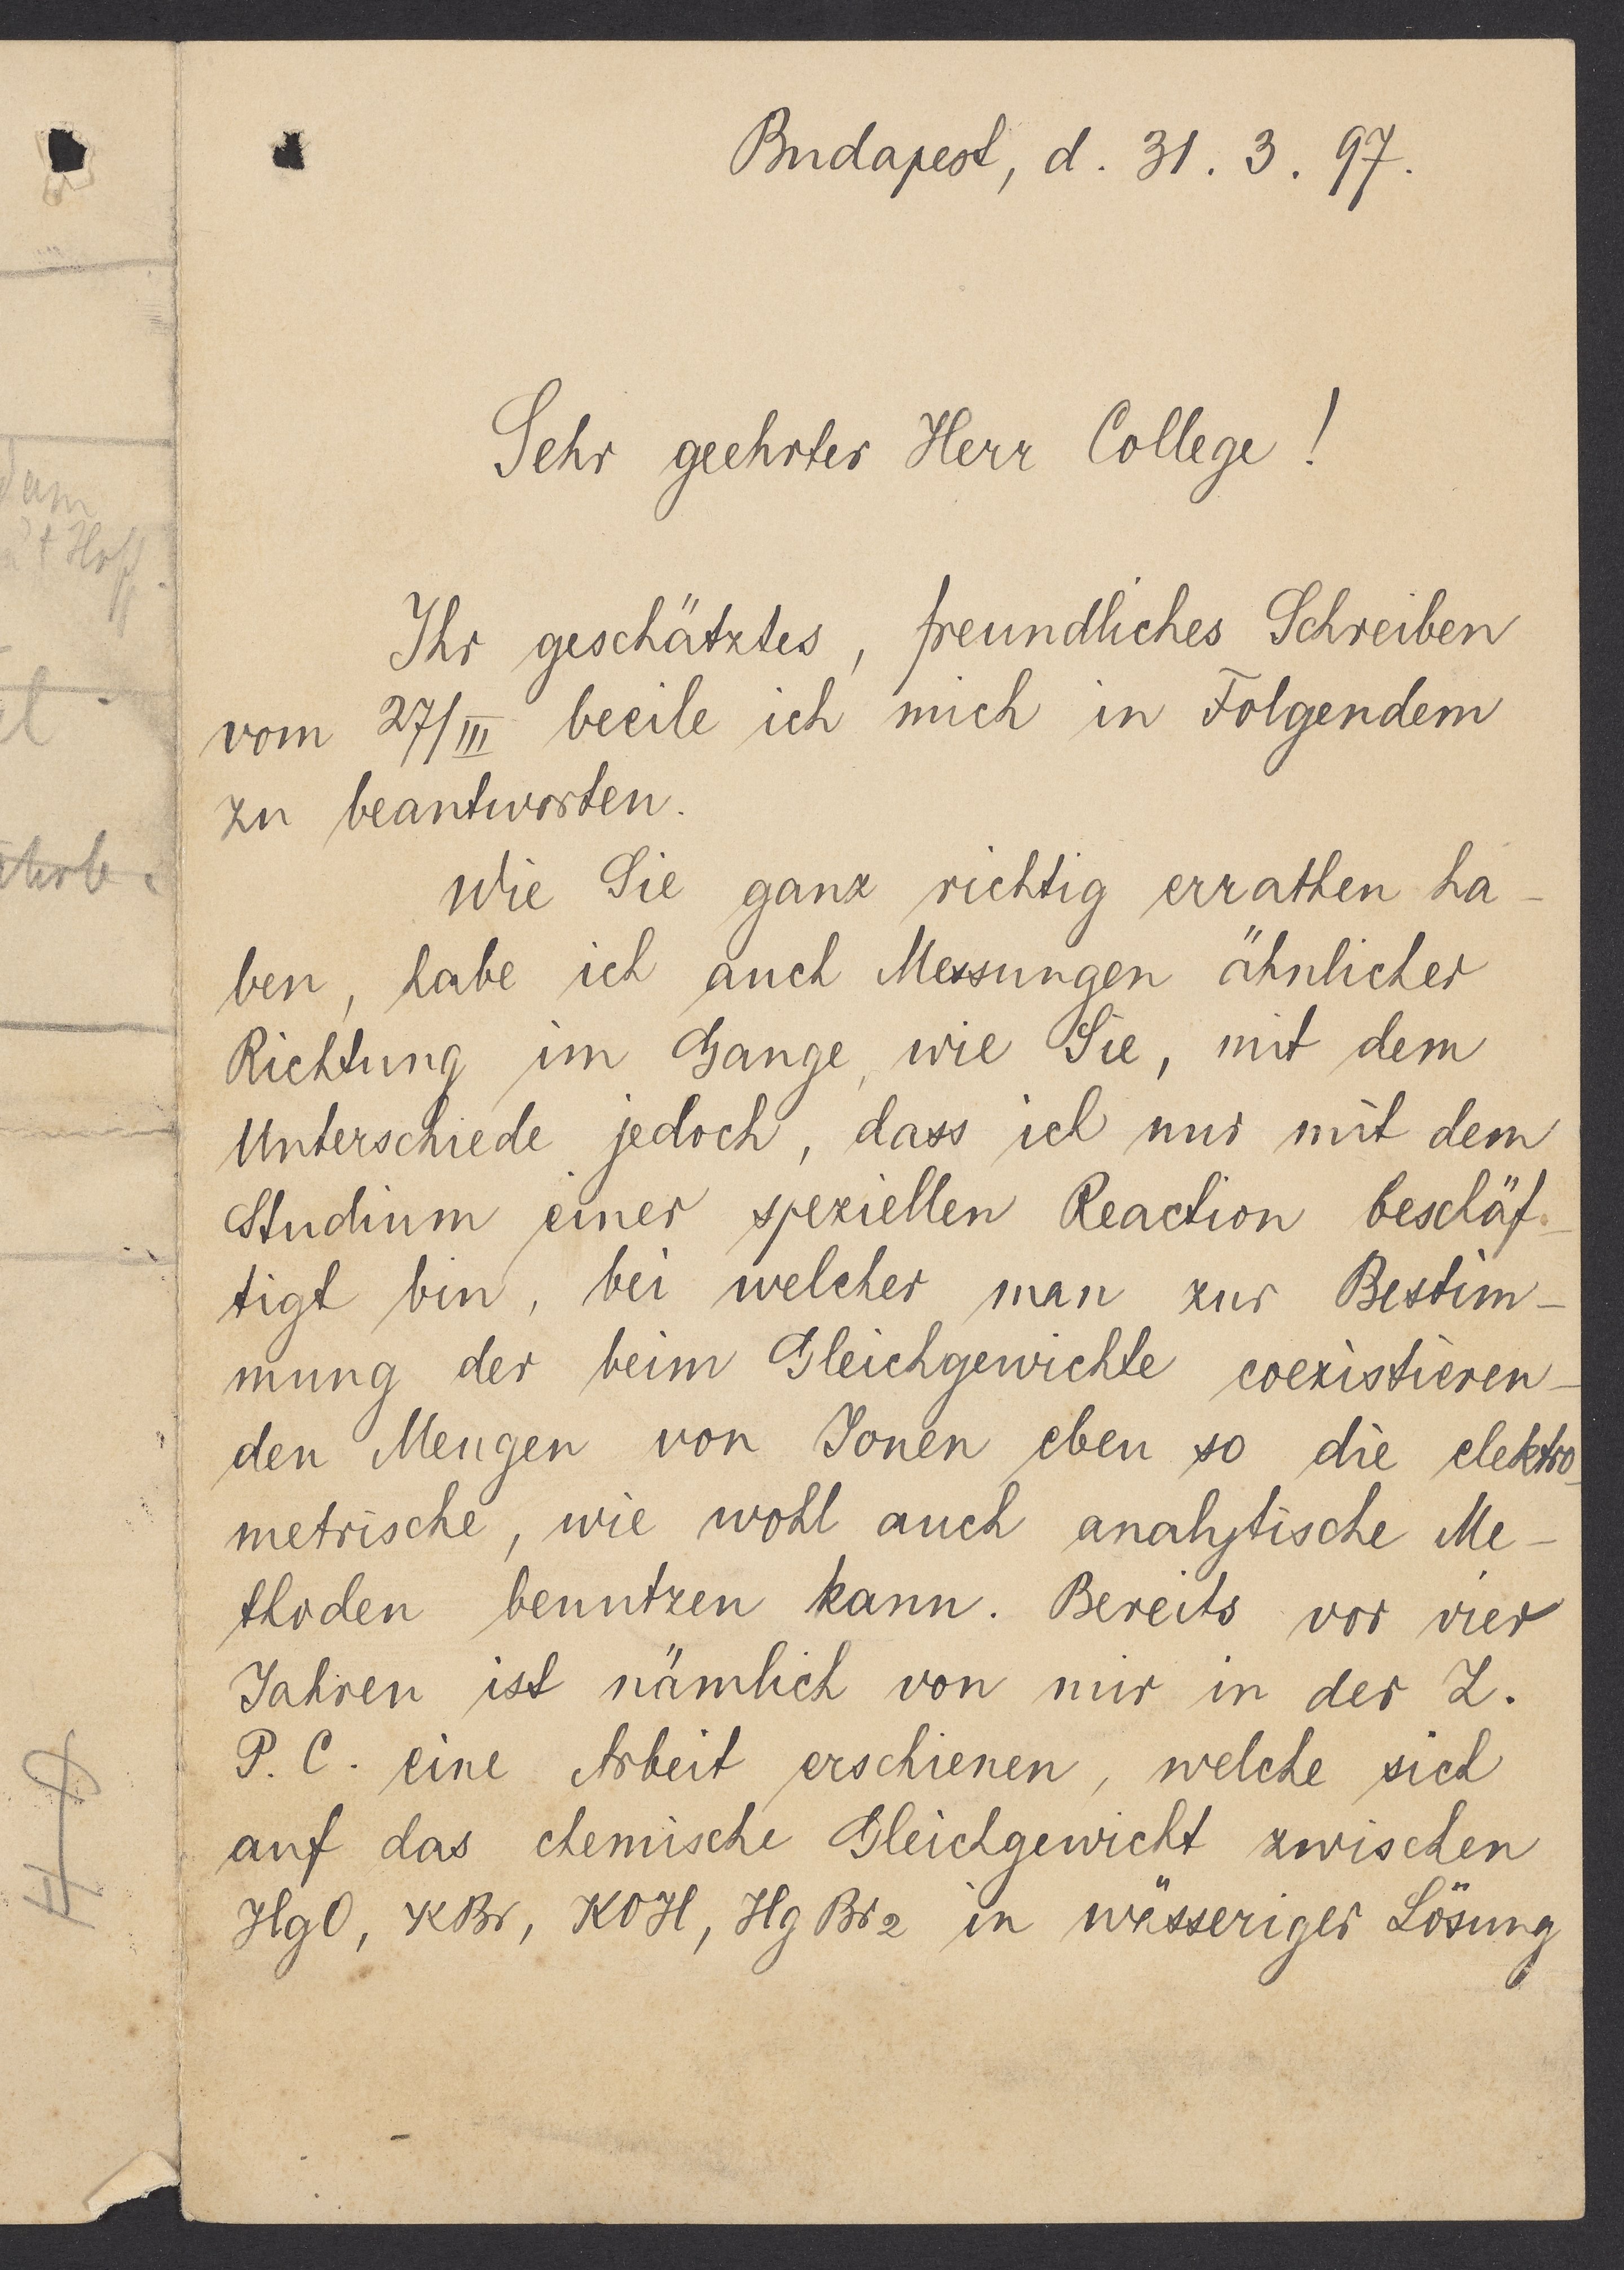 Budapest, d. 31. 3. 97.
Sehr geehrter Herr College!
Ihr geschätztes, freundliches Schreiben
vom 27/III beeile ich mich in Folgendem
zu beantworten.
Wie Sie ganz richtig errathen ha-
ben, habe ich auch Messungen ähnlicher
Richtung im Gange, wie Sie, mit dem
Unterschiede jedoch, dass ich nur mit dem
Studium einer speziellen Reaction beschäf-
tigt bin, bei welcher man zur Bestim-
mung der beim Gleichgewichte coexistieren-
den Mengen von Ionen eben so die elektro-
metrische, wie wohl auch analytische Me-
thoden benutzen kann. Bereits vor vier
Jahren ist nämlich von mir in der Z.
P. C. eine Arbeit erschienen, welche sich
auf das chemische Gleichgewicht zwischen
HgO, KBr, KOH, HgBr2 in wässeriger Lösung